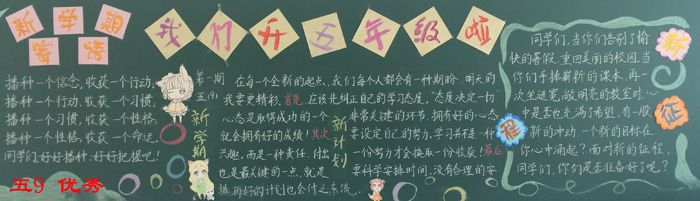 新学期
寄语
我们升五年级啦
播种一个信念,收获一个行动,
播种一个行动,收获一个习惯,
播种一个习惯,收获一个性格,
播种一个性格,收获一个命运,
同学们,好好播种,好好把握吧!
第一期
五(9)
新学期
在每一个全新的起点,我们每个人都会有一种期盼:明天的
我要更精彩,首先,应该先纠正自己的学习态度,“态度决定一切”
心态是取得成功的一个
就会拥有好的成绩!其次
兴趣,而是一种责任,付出
也是最关键的一点,就是
排,再好的计划也会付之东流。
新计划
非常关键的环节,拥有好的心态
要设定自己的努力,学习并不是一种
一份努力才会换取一份收获!最后
要科学安排时间,没有合理的安
同学们,当你们告别了愉
快的暑假,重回美丽的校园,当
你们手捧崭新的课本,再一
次坐进宽敞明亮的教室时,心
中是否也充满了希望,有一股
新的冲动,一个新的目标在
你心中涌起?面对新的征程,
同学们,你们是否准备好了呢?
新
征
程
五9 优秀